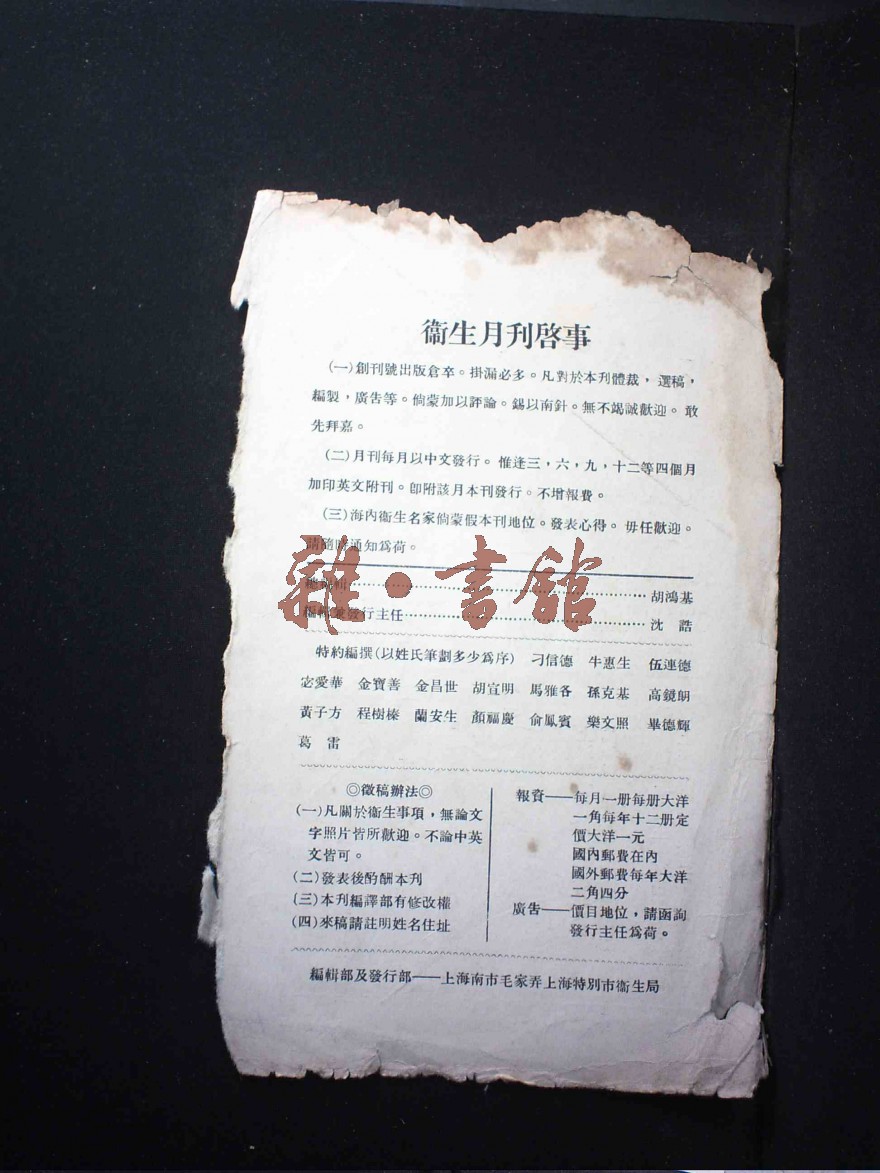 衞生月刊啓事
(一)創刊號出版倉卒。掛漏必多。凡對於本刊體裁，選稿，
編製，廣告等。倘蒙加以評論。錫以南針。無不竭誠歡迎。敢
先拜嘉。
(二)月刊每月以中文發行。惟逢三，六，九，十二等四個月
加印英文附刊。卽附該月本刊發行。不增報費。
(三)海內衞生名家倘蒙假本刊地位。發表心得。毋任歡迎。
請隨時通知爲荷。
總編輯⋯⋯⋯⋯⋯⋯⋯⋯胡鴻基
編輯兼發行主任⋯⋯⋯⋯⋯⋯⋯⋯沈 誥
雜·書館
特約編撰(以姓氏筆劃多少爲序) 刁信德 牛惠生 伍連德
宓愛華 金寶善 金昌世 胡宣明 馬雅各 孫克基 高鏡朗
黃子方 程樹榛 蘭安生 顏福慶 俞鳳賓 樂文照 畢德輝
葛 雷
◎徵稿辦法◎
(一)凡關於衞生事項，無論文
字照片皆所歡迎。不論中英
文皆可。
(二)發表後酌酬本刊
(三)本刊編譯部有修改權
(四)來稿請註明姓名住址
報資——每月一册每册大洋
一角每年十二册定
價大洋一元
國內郵費在內
國外郵費每年大洋
二角四分
廣告——價目地位，請函詢
發行主任爲荷。
編輯部及發行部——上海南市毛家弄上海特別市衞生局